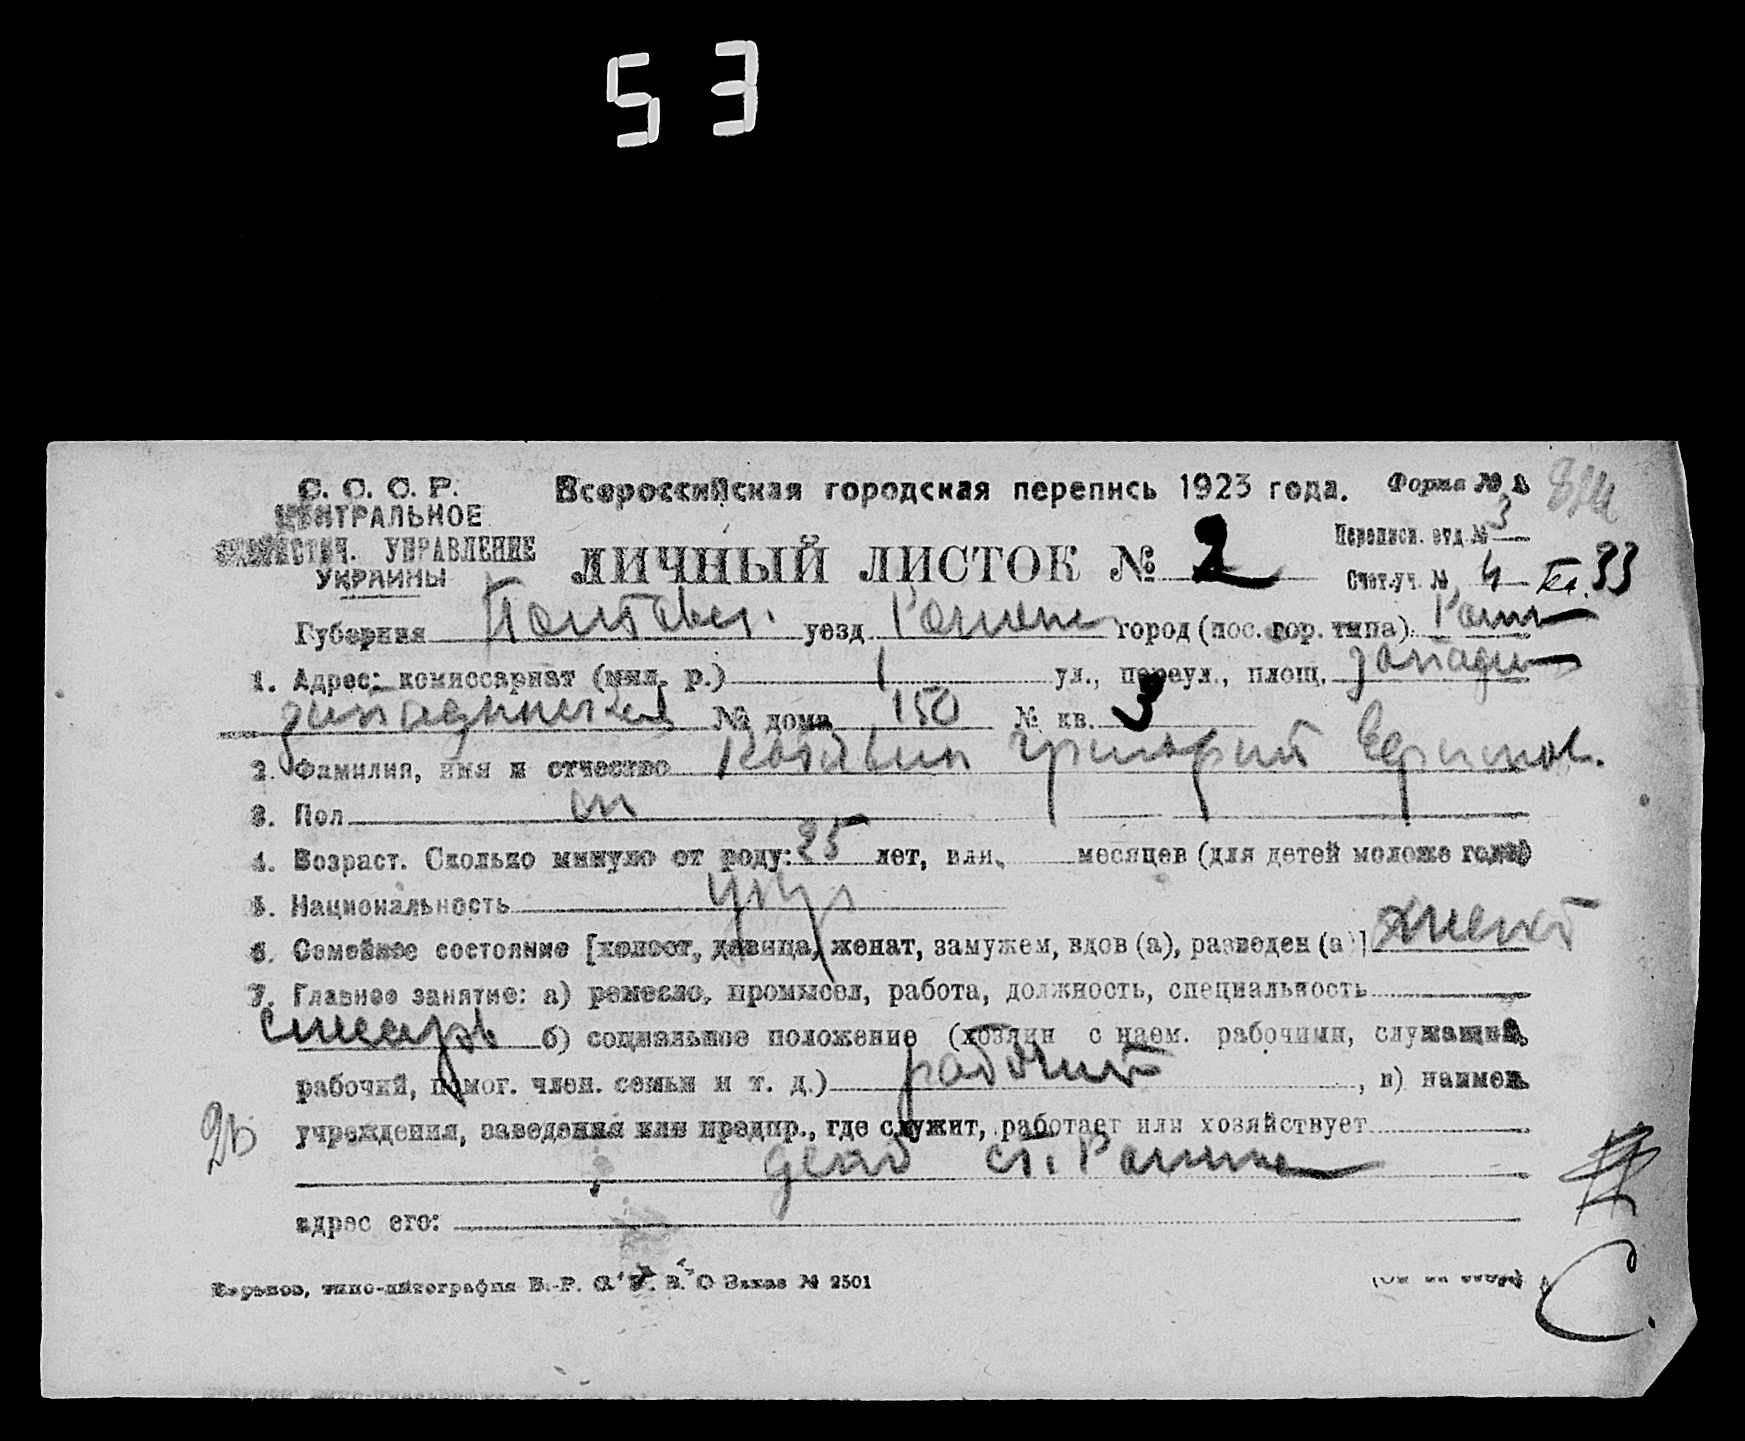 53
С. С. С. Р. Всероссийская городская перепись 1923 года. Форма № 1
ЦЕНТРАЛЬНОЕ Переписи. отд. № 3
СТАТИСТИЧ. УПРАВЛЕНИЕ ЛИЧНЫЙ ЛИСТОК № 2
УКРАИНЫ Счет. уч. № 4 33
Губерния Полтавск. уезд Роменск город (пос. гор. типа)
1. Адрес: комиссариат (мил. р.) 1 ул., переул., площ.
№ дома 150 № кв. 3
2. Фамилия, имя и отчество Григорий Ефимов.
3. Пол м
4. Возраст. Сколько минуло от роду: 25 лет, или месяцев (для детей моложе года)
5. Национальность укр
6. Семейное состояние [холост, девица, женат, замужем, вдов (а), разведен (а)] женат
7. Главное занятие: а) ремесло, промысел, работа, должность, специальность
слесарь б) социальное положение (хозяин с наем. рабочими, служащий,
рабочий, помог. член. семьи и т. д.) рабочий, в) наимен.
учреждения, заведения или предпр., где служит, работает или хозяйствует
депо ст. Ромны
адрес его:
Харьков, типо-литография В.-Р. С. Заказ № 2501